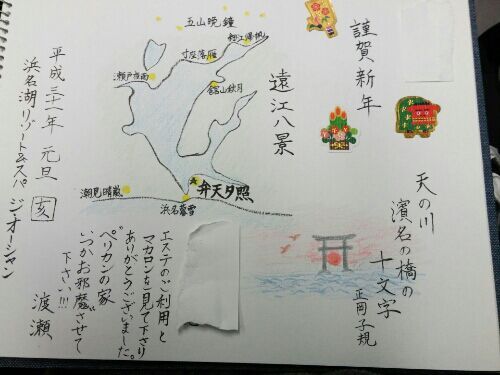 謹賀新年
天の川
濱名の橋の
十文字
正岡子規
遠江八景
五山晩鐘
細江帰帆
寸座落雁
瀬戸夜雨
舘山秋月
潮見晴嵐
弁天夕照
浜名暮雪
エステのご利用と
マカロンを見て下さり
ありがとうございました。
"ペリカンの家"
いつかお邪魔させて
下さい!!!
渡瀬
平成三十一年 元旦 亥
浜名湖リゾート&スパ
ジ・オーシャン